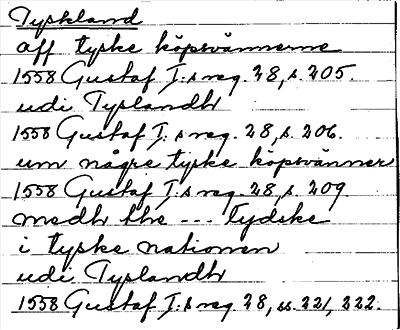 Tyskland
aff tyske köpsvännerne
1558 Gustaf I:s reg. 28, s. 205.
udi Tyslandh
1558 Gustaf I:s reg. 28, s. 206.
um någre tyske köpsvänner
1558 Gustaf I:s reg. 28, s. 209
medh the --- tydske
i tyske nationen
udi Tyslandh
1558 Gustaf I:s reg. 28, ss. 221, 222.